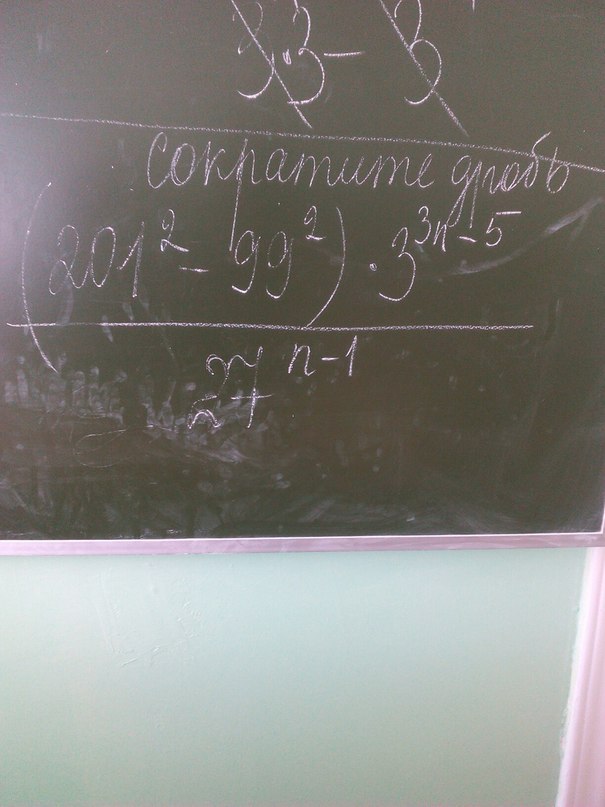 3·3- 3
сократите дробь
(201² - 99²) · 3³ⁿ⁻⁵
27ⁿ⁻¹